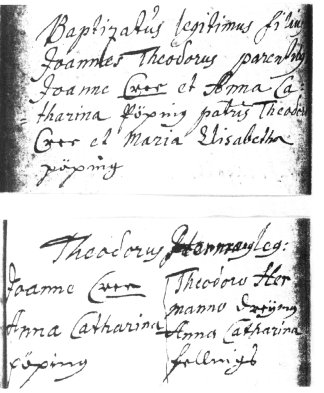 Baptizatus legitimus filius
Joannes Theodorus parentibus
Joanne Cree et Anna Ca-
tharina Pöping patrini Theodor
Cree et Maria Elisabetha
pöping
Theodorus leg:
Joanne Cree
Anna Catharina
pöping
Theodoro Her
manno
Anna Catharina